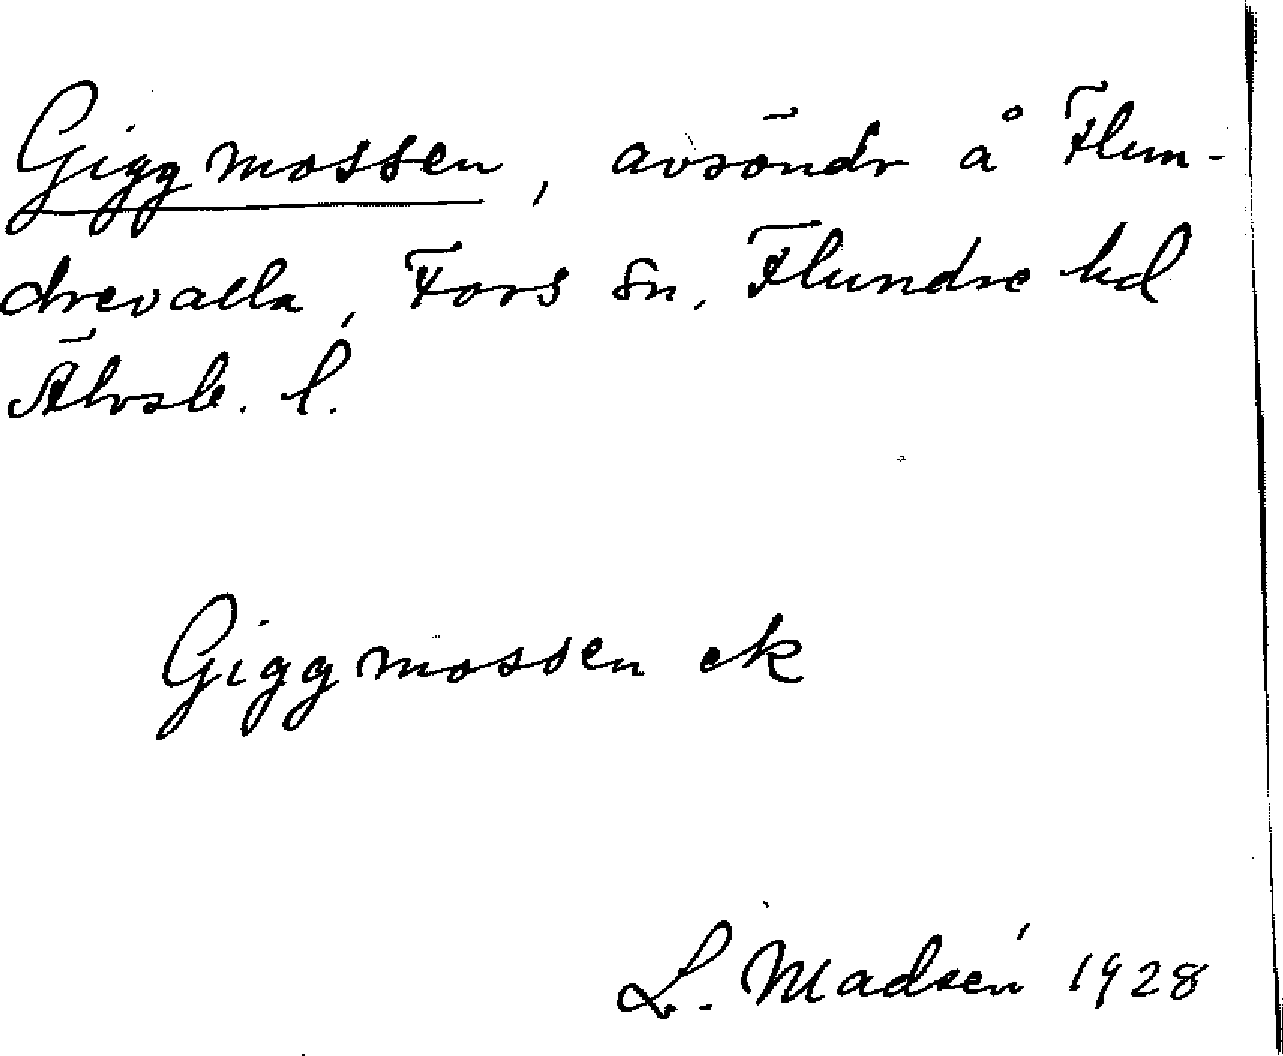 Giggmossen, avsöndr å Flun-
drevalla, Fors sn, Flundre hd
Älvsb. l.
Giggmossen ek
L. Madsén 1928